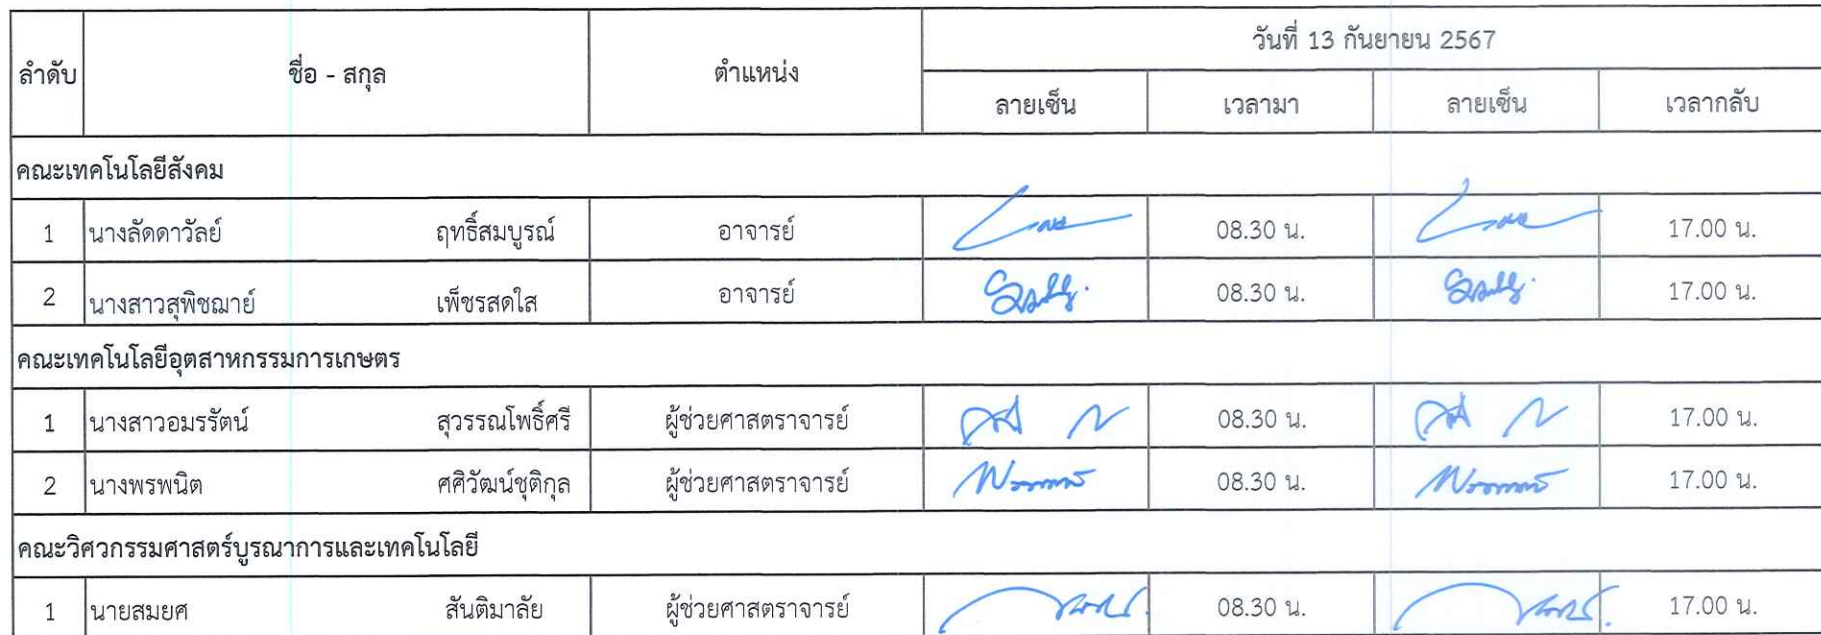 ลำดับ ชื่อ - สกุล ตำแหน่ง วันที่ 13 กันยายน 2567
ลายเซ็น เวลามา ลายเซ็น เวลากลับ
คณะเทคโนโลยีสังคม
1 นางลัดดาวัลย์ ฤทธิ์สมบูรณ์ อาจารย์ 08.30 น. 17.00 น.
2 นางสาวสุพิชฌาย์ เพ็ชรสดใส อาจารย์ 08.30 น. 17.00 น.
คณะเทคโนโลยีอุตสาหกรรมการเกษตร
1 นางสาวอมรรัตน์ สุวรรณโพธิ์ศรี ผู้ช่วยศาสตราจารย์ 08.30 น. 17.00 น.
2 นางพรพนิต ศศิวัฒน์ชุติกุล ผู้ช่วยศาสตราจารย์ 08.30 น. 17.00 น.
คณะวิศวกรรมศาสตร์บูรณาการและเทคโนโลยี
1 นายสมยศ สันติมาลัย ผู้ช่วยศาสตราจารย์ 08.30 น. 17.00 น.